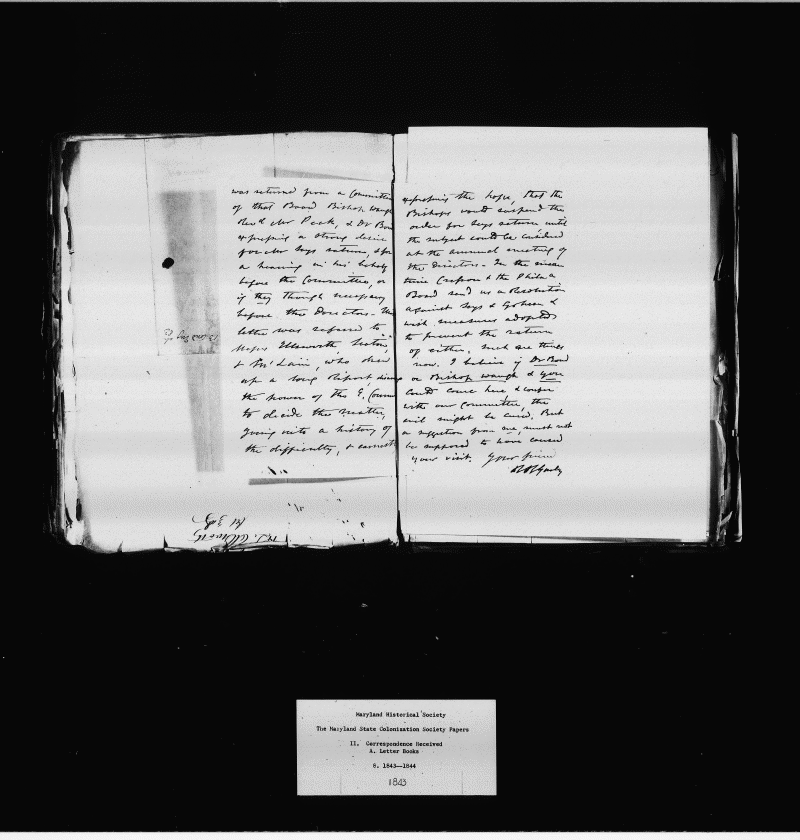 was returned from a Committee
of that Board Bishop Waugh
Revd Mr Peck, & Dr Bond
expressing a strong desire
for Mr Seys return, & for
a hearing in his behalf
before the Committee, or
if they though necessary
before the Directors. The
letter was referred to
Messrs Ellsworth,
& McLain, who drew
up a long Report,
the power of the E. Comm
to decide the matter,
going into a history of
the difficulty, & earnest
expressing the hope, that the
Bishops would suspend the
order for Seys return until
the subject could be considered
at the annual meeting of
the Directors. In the mean
time Cresson & the Philad
Board send us a Resolution
against Seys & &
wish measures adopted
to prevent the return
of either. Such are things
now. I believe if Dr Bond
or Bishop Waugh & you
could come here & confer
with our Committee, the
evil might be cured. But
a suggestion from me, must not
be supposed to have caused
your visit. Your friend
R R Gurley
Maryland Historical Society
The Maryland State Colonization Society Papers
II. Correspondence Received
A. Letter Books
8. 1843--1844
1843